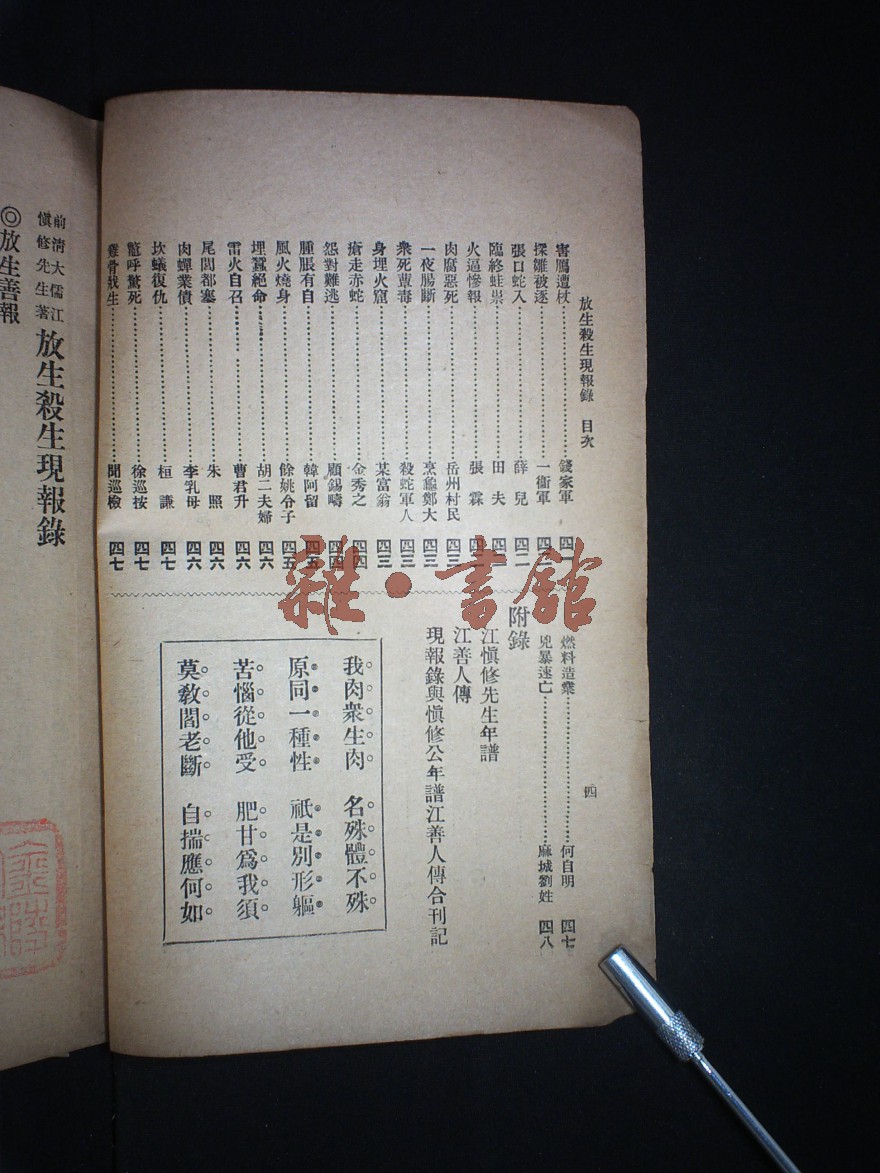 放生殺生現報錄 目次
四
害鴈遭杖 錢家軍 四一
探雛被逐 一衞軍
張口蛇入 薛兒 四二
臨終蛙祟 田夫
火逼慘報 張霖
肉腐惡死 岳州村民 四三
一夜腸斷 烹龜鄭大 四三
衆死蕈毒 殺蛇軍人 四三
身埋火窟 某富翁 四三
瘡走赤蛇 金秀之 四四
怨對難逃 顧錫疇 四四
腫脹有自 韓阿留 四五
風火燒身 餘姚令子 四五
埋蠶絕命 胡二夫婦 四六
雷火自召 曹君升 四六
尾閭都塞 朱照 四六
肉蟬業債 李乳母 四六
坎蟻復仇 桓謙 四七
籠呼驚死 徐巡按 四七
雞骨戕生 聞巡檢 四七
燃料造業 何自明 四七
兇暴速亡 麻城劉姓 四八
附錄
江愼修先生年譜
江善人傳
現報錄與愼修公年譜江善人傳合刊記
我肉衆生肉 名殊體不殊
原同一種性 祇是別形軀
苦惱從他受 肥甘爲我須
莫教閻老斷 自揣應何如
雜·書館
前清大儒江
愼修先生著
放生殺生現報錄
◎放生善報